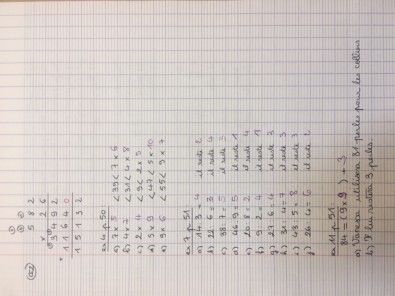 582
× 26
3492
+ 11640
15132
ex 4 p.50
a) 7 x 5 < 39 < 7 x 6
b) 4 x 7 < 31 < 4 x 8
c) 2 x 4 < 9 < 2 x 5
d) 5 x 9 < 47 < 5 x 10
e) 9 x 6 < 55 < 9 x 7
ex 7 p.51
a) 14 : 3 = 4 il reste 2
b) 22 : 6 = 3 il reste 4
c) 38 : 7 = 5 il reste 3
d) 46 : 9 = 5 il reste 1
e) 20 : 8 = 2 il reste 4
f) 9 : 2 = 4 il reste 1
g) 27 : 6 = 4 il reste 3
h) 31 : 4 = 7 il reste 3
i) 43 : 5 = 8 il reste 3
j) 26 : 4 = 6 il reste 2
ex 11 p.51
84 = (9 x 9) + 3
a) Vanessa utilisera 81 perles pour les colliers
b) Il lui restera 3 perles.